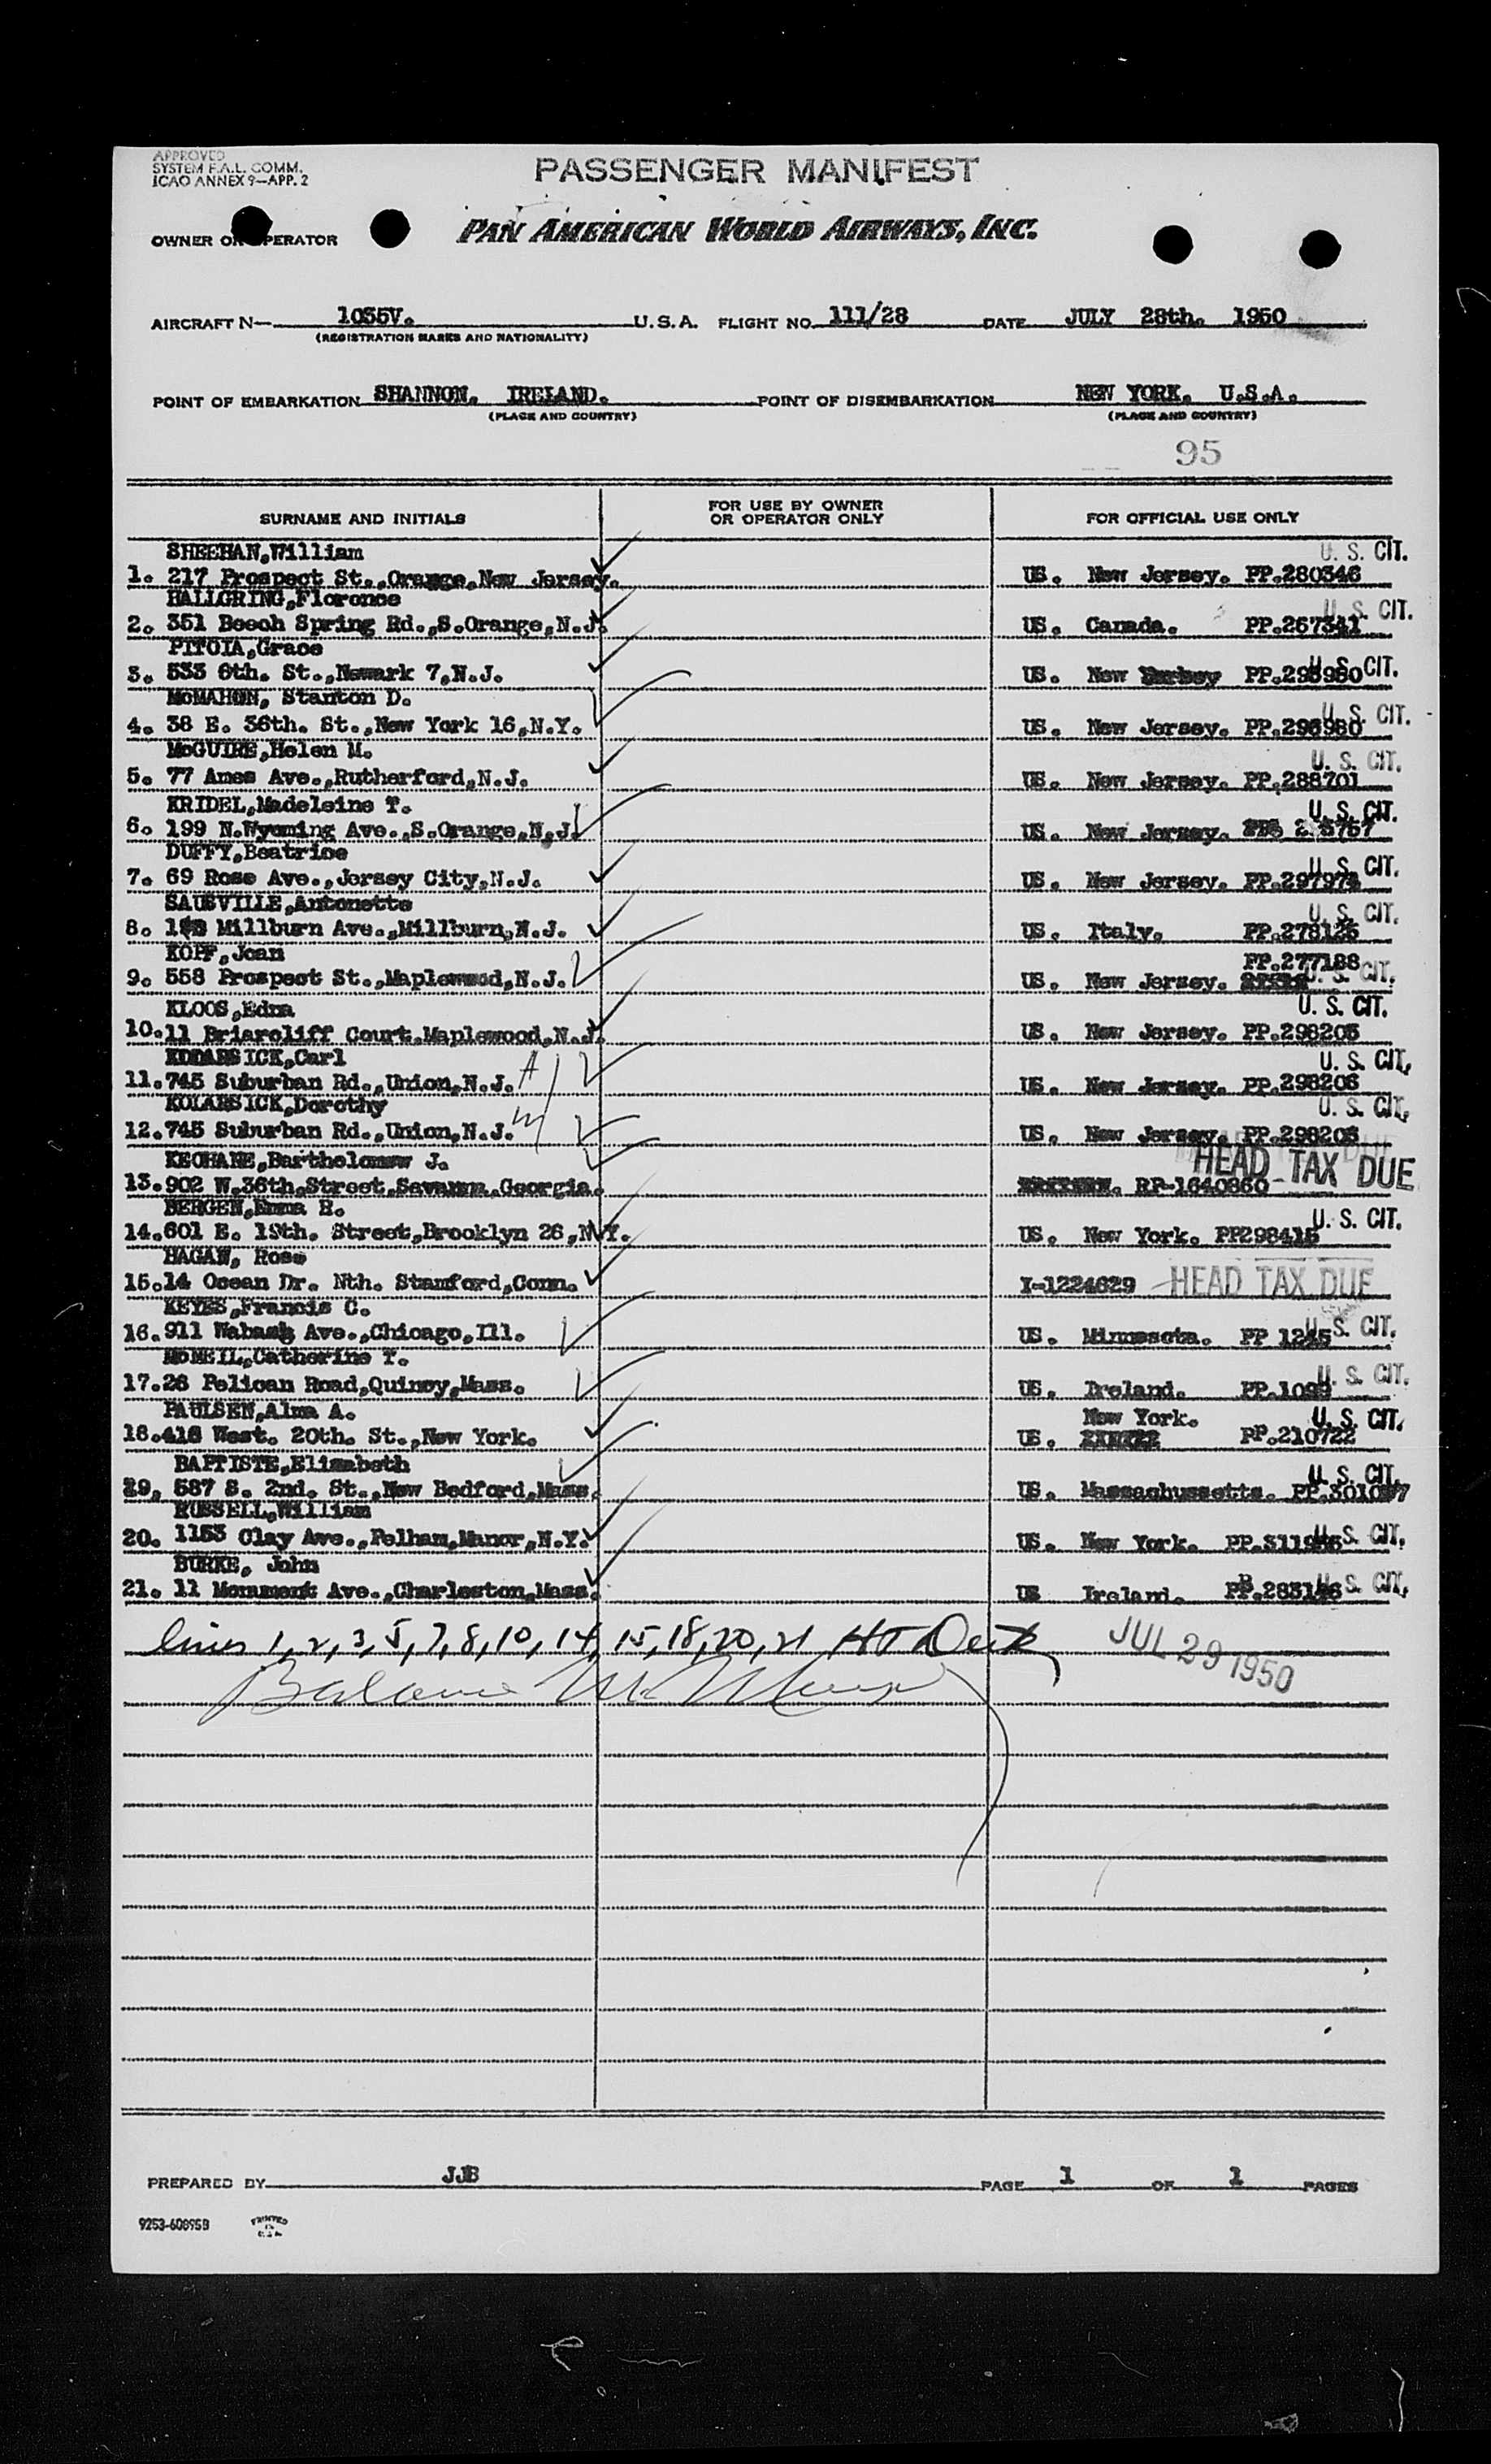 APPROVED
SYSTEM F.A.L. COMM.
ICAO ANNEX 9—APP. 2
PASSENGER MANIFEST
OWNER OR OPERATOR PAN AMERICAN WORLD AIRWAYS, INC.
AIRCRAFT N— 1035V. U.S.A. FLIGHT NO. 111/28 DATE JULY 28th. 1950
(REGISTRATION MARKS AND NATIONALITY)
POINT OF EMBARKATION SHANNON. IRELAND. POINT OF DISEMBARKATION NEW YORK. U.S.A.
(PLACE AND COUNTRY) (PLACE AND COUNTRY)
95
SURNAME AND INITIALS FOR USE BY OWNER OR OPERATOR ONLY FOR OFFICIAL USE ONLY
SHEEHAN,William U. S. CIT.
1. 217 Prospect St.,Orange,New Jersey. US. New Jersey. PP.280346
HALLGRING,Florence U. S. CIT.
2. 351 Beech Spring Rd.,S.Orange,N.J. US. Canada. PP.267341
PITOIA,Grace
3. 533 6th. St.,Newark 7,N.J. US. New PP.295980 U. S. CIT.
McMAHON, Stanton D. U. S. CIT.
4. 38 E. 36th. St.,New York 16,N.Y. US. New Jersey. PP.296960
McGUIRE,Helen M. U. S. CIT.
5. 77 Ames Ave.,Rutherford,N.J. US. New Jersey. PP.288701
KRIDEL,Madeleine T. U. S. CIT.
6. 199 N.Wyoming Ave.,S.Orange,N.J. US. New Jersey.
DUFFY,Beatrice U. S. CIT.
7. 69 Rose Ave.,Jersey City,N.J. US. New Jersey. PP.297974
SAUSVILLE,Antonette U. S. CIT.
8. Millburn Ave.,Millburn,N.J. US. Italy. PP.278125
KOPF,Jean PP.277188
9. 558 Prospect St.,Maplewood,N.J. US. New Jersey. U. S. CIT.
KLOOS,Edna U. S. CIT.
10.11 Briarcliff Court.Maplewood,N.J. US. New Jersey. PP.298205
Carl U. S. CIT.
11.745 Suburban Rd.,Union,N.J. A US. New Jersey. PP.298206
KOLARSICK,Dorothy U. S. CIT.
12.745 Suburban Rd.,Union,N.J. m US. New Jersey. PP.298206
KEOHANE,Bartholomew J. HEAD TAX DUE
13.902 W.36th.Street.Savanna.Georgia. RP-1640860
BERGEN,Emma R. U. S. CIT.
14.601 E. 19th. Street,Brooklyn 26,N.Y. US. New York. PP298415
HAGAN, Rose
15.14 Ocean Dr. Nth. Stamford,Conn. I-1224629 HEAD TAX DUE
KEYES,Francis C. U. S. CIT.
16.911 Wabash Ave.,Chicago,Ill. US. Minnesota. PP 1245
McNEIL,Catherine T. U. S. CIT.
17.26 Pelican Road,Quincy,Mass. US. Ireland. PP.1099
PAULSEN,Alma A. New York. U. S. CIT.
18.416 West. 20th. St.,New York. US. PP.210722
BAPTISTE,Elizabeth U. S. CIT.
19. 587 S. 2nd. St.,New Bedford,Mass. US. Massachussetts.
RUSSELL,William U. S. CIT.
20. 1153 Clay Ave.,Pelham,Manor,N.Y. US. New York.
BURKE, John U. S. CIT.
21. 11 Monument Ave.,Charleston,Mass. US Ireland. PP.283146
lines 1,2,3,5,7,8,10,14,15,18,20,21 HT
JUL 29 1950
Balance
PREPARED BY JJB PAGE 1 OF 1 PAGES
9253-60895B PRINTED IN U.S.A.